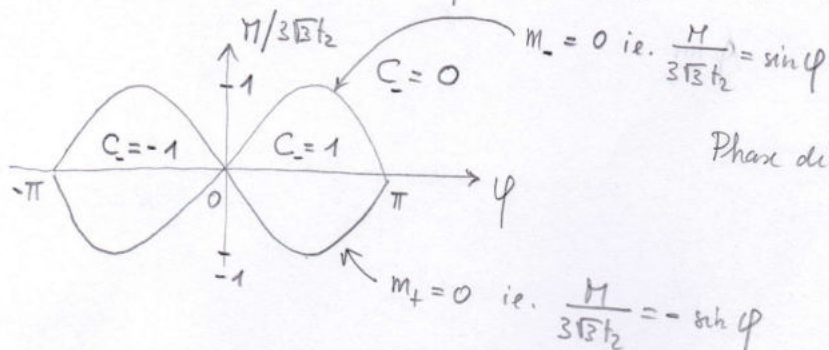 M/3√3t₂
m_ = 0 ie. M/3√3t₂ = sin φ
1
C_ = 0
C_ = -1
C_ = 1
Phase
-π
0
π
φ
-1
m₊ = 0 ie. M/3√3t₂ = - sin φ